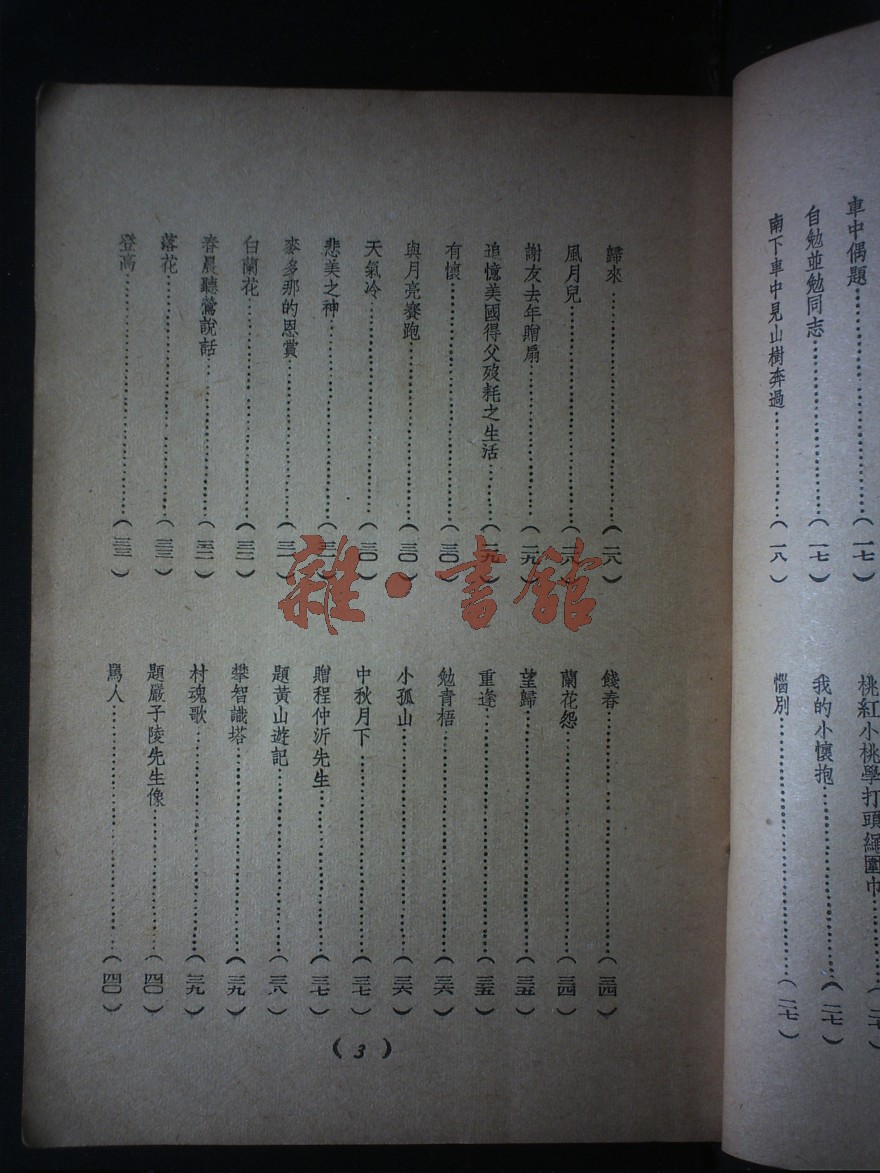 車中偶題……(一七)
自勉並勉同志……(一七)
南下車中見山樹奔過……(一八)
桃紅小桃學打頭繩圍巾……(二七)
我的小懷抱……(二七)
惱別……(二七)
歸來……(二八)
風月兒……(二八)
謝友去年贈扇……(二九)
追憶美國得父歿耗之生活……(二九)
有懷……(三〇)
與月亮賽跑……(三〇)
天氣冷……(三〇)
悲美之神……(三一)
麥多那的恩賞……(三一)
白蘭花……(三二)
春晨聽鶯說話……(三二)
落花……(三三)
登高……(三三)
餞春……(三四)
蘭花怨……(三四)
望歸……(三五)
重逢……(三五)
勉青梧……(三六)
小孤山……(三六)
中秋月下……(三七)
贈程仲沂先生……(三七)
題黃山遊記……(三八)
攀智識塔……(三九)
村魂歌……(三九)
題嚴子陵先生像……(四〇)
罵人……(四〇)
(3)
雜·書館